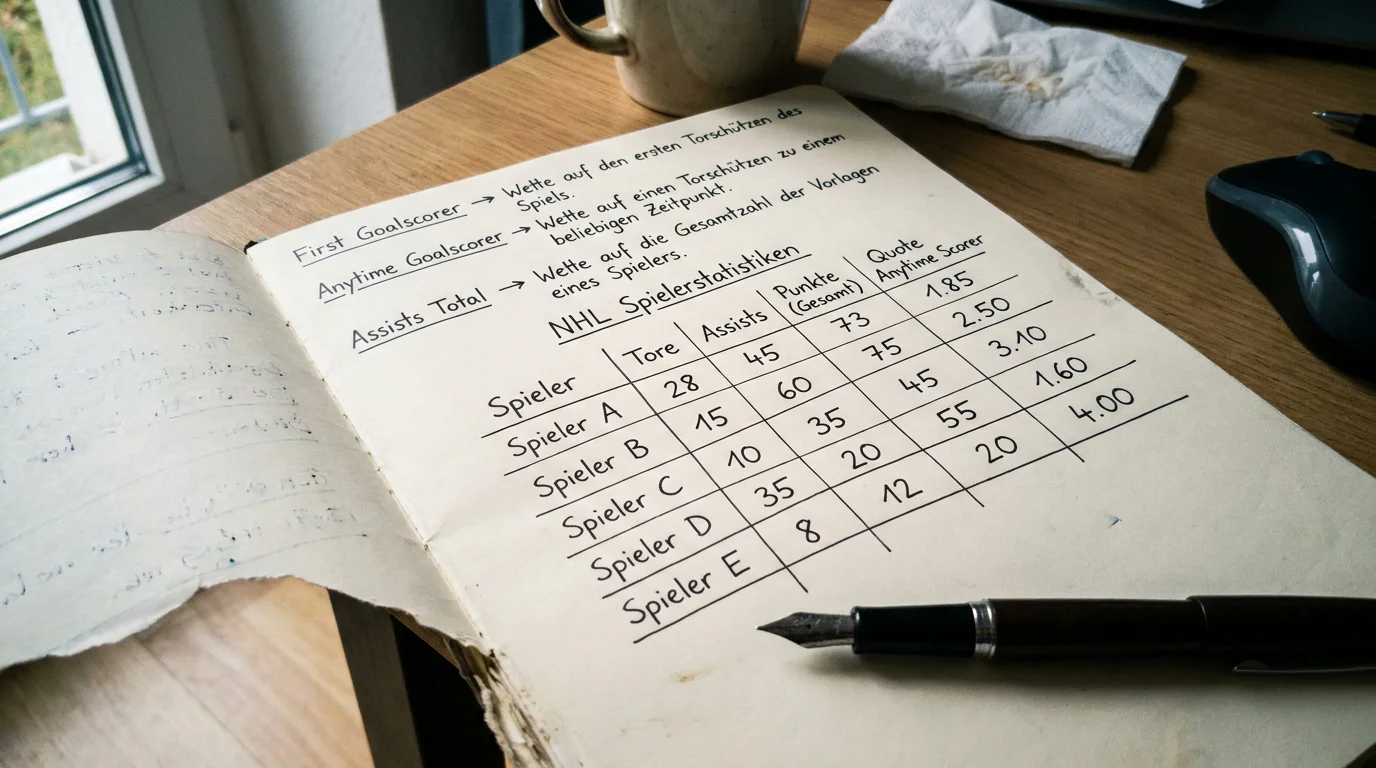 First Goalscorer → Wette auf den ersten Torschützen des
Spiels.
Anytime Goalscorer → Wette auf einen Torschützen zu einem
beliebigen Zeitpunkt.
Assists Total → Wette auf die Gesamtzahl der Vorlagen
eines Spielers.
NHL Spielerstatistiken
Spieler Tore Assists Punkte (Gesamt) Quote Anytime Scorer
Spieler A 28 45 73 1.85
Spieler B 15 60 75 2.50
Spieler C 10 35 45 3.10
Spieler D 35 20 55 1.60
Spieler E 8 12 20 4.00